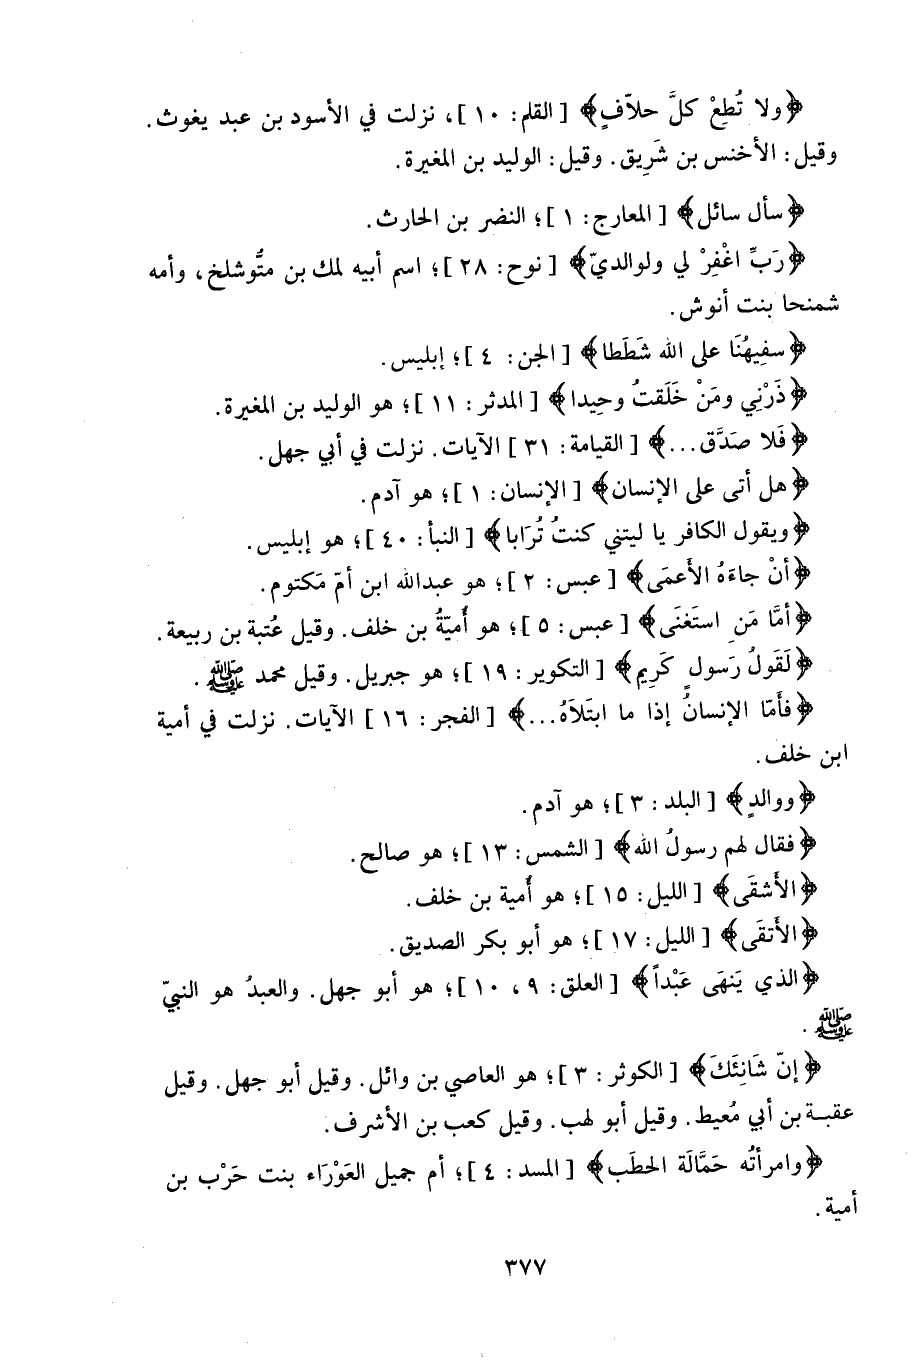 ﴿ولا تُطِعْ كلَّ حلاّفٍ﴾ [القلم: ١٠]، نزلت في الأسود بن عبد يغوث.
وقيل: الأخنس بن شَرِيق. وقيل: الوليد بن المغيرة.
﴿سأل سائل﴾ [المعارج: ١]؛ النضر بن الحارث.
﴿رَبِّ اغْفِرْ لي ولوالديّ﴾ [نوح: ٢٨]؛ اسم أبيه لمك بن متُّوشلخ، وأمه
شمنحا بنت أنوش.
﴿سفِيهُنَا على الله شَطَطا﴾ [الجن: ٤]؛ إبليس.
﴿ذَرْنِي ومَنْ خَلَقتُ وحِيدا﴾ [المدثر: ١١]؛ هو الوليد بن المغيرة.
﴿فَلا صَدَّق...﴾ [القيامة: ٣١] الآيات. نزلت في أبي جهل.
﴿هل أتى على الإنسان﴾ [الإنسان: ١]؛ هو آدم.
﴿ويقول الكافر يا ليتني كنتُ تُرَابا﴾ [النبأ: ٤٠]؛ هو إبليس.
﴿أنْ جاءَهُ الأَعمَى﴾ [عبس: ٢]؛ هو عبدالله ابن أمّ مَكتوم.
﴿أمَّا مَنِ استَغنَى﴾ [عبس: ٥]؛ هو أُميّةُ بن خلف. وقيل عُتبة بن ربيعة.
﴿لَقَولُ رَسولٍ كَرِيم﴾ [التكوير: ١٩]؛ هو جبريل. وقيل محمد ﷺ.
﴿فأَمّا الإنسانُ إذا ما ابتَلاَهُ...﴾ [الفجر: ١٦] الآيات. نزلت في أمية
ابن خلف.
﴿ووالدٍ﴾ [البلد: ٣]؛ هو آدم.
﴿فقال لهم رسولُ الله﴾ [الشمس: ١٣]؛ هو صالح.
﴿الأَشقَى﴾ [الليل: ١٥]؛ هو أُمية بن خلف.
﴿الأَتقَى﴾ [الليل: ١٧]؛ هو أبو بكر الصديق.
﴿الذي يَنهَى عَبْداً﴾ [العلق: ٩، ١٠]؛ هو أبو جهل. والعبدُ هو النبيّ
ﷺ.
﴿إنّ شَانِئَكَ﴾ [الكوثر: ٣]؛ هو العاصي بن وائل. وقيل أبو جهل. وقيل
عقبة بن أبي مُعيط. وقيل أبو لهب. وقيل كعب بن الأشرف.
﴿وامرأتُه حَمَّالَة الحطَب﴾ [المسد: ٤]؛ أم جميل العَوْرَاء بنت حَرْب بن
أمية.
٣٧٧